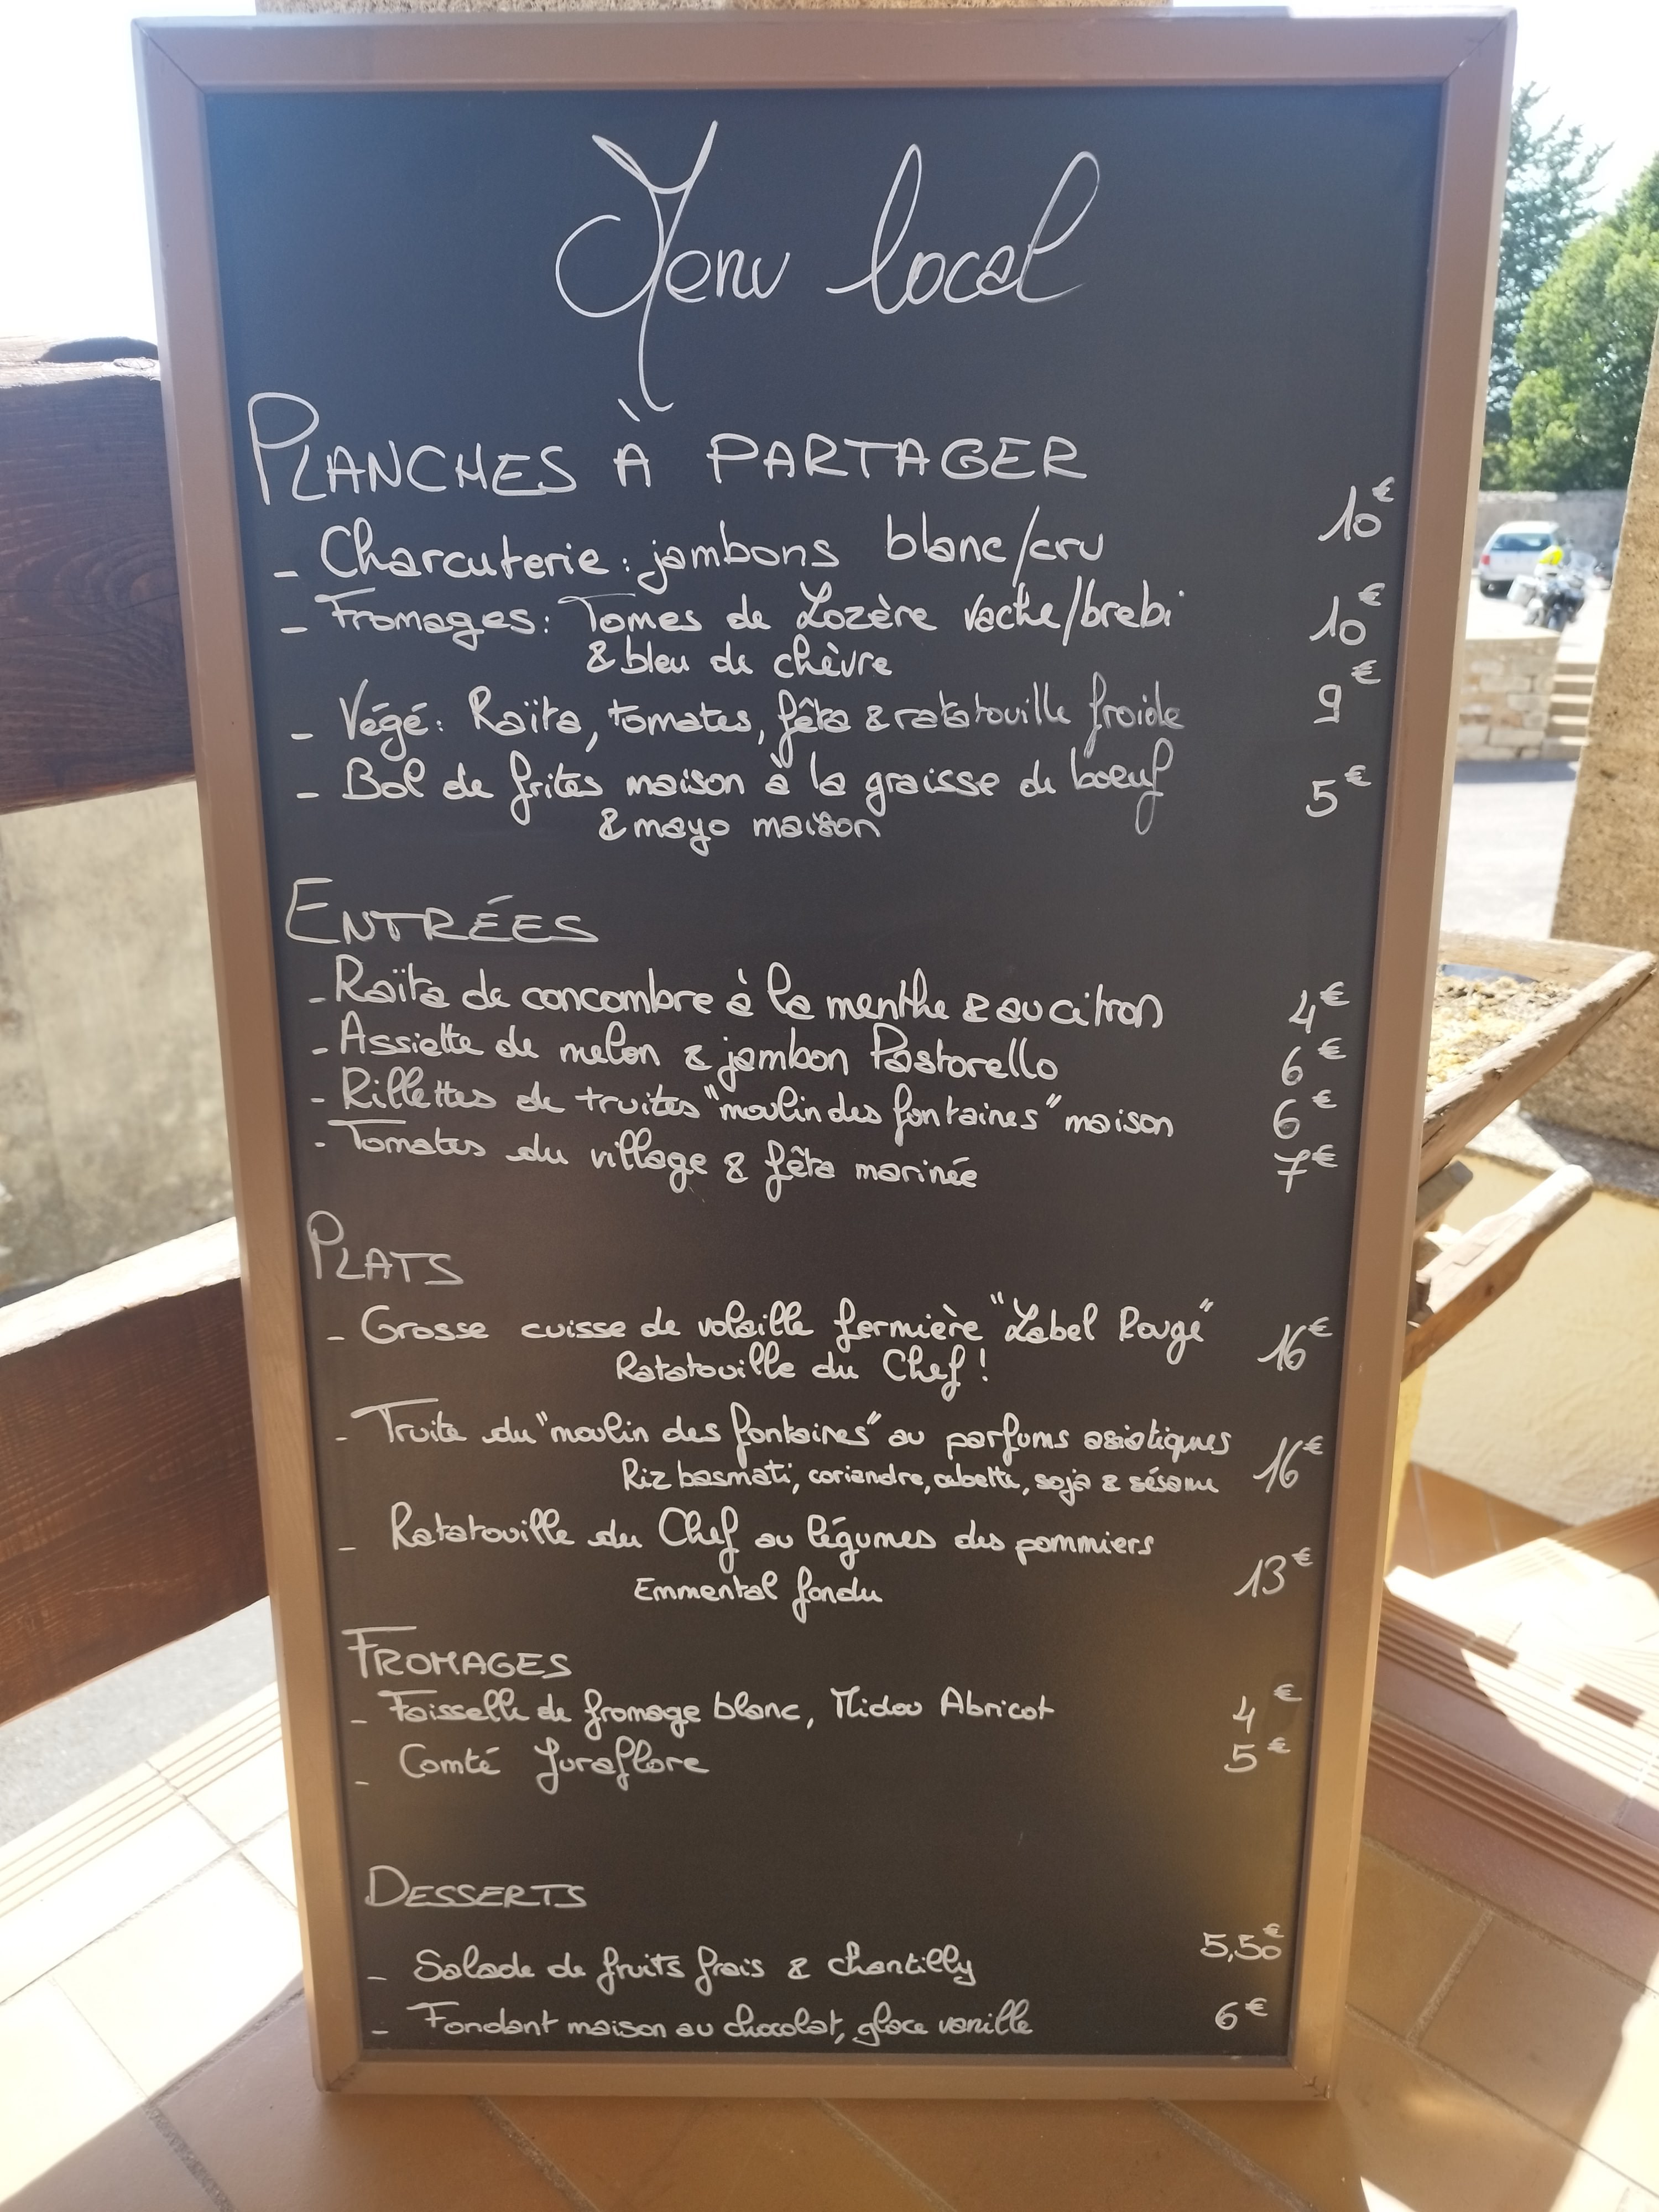 Menu local
PLANCHES À PARTAGER
- Charcuterie : jambons blanc/cru 10€
- Fromages : Tomes de Lozère vache/brebi 10€
& bleu de chèvre
- Végé : Raïta, tomates, fêta & ratatouille froide 9€
- Bol de frites maison à la graisse de boeuf 5€
& mayo maison
ENTRÉES
- Raïta de concombre à la menthe & au citron 4€
- Assiette de melon & jambon Pastorello 6€
- Rillettes de truites "moulin des fontaines" maison 6€
- Tomates du village & fêta marinée 7€
PLATS
- Grosse cuisse de volaille fermière "Label Rouge" 16€
Ratatouille du Chef !
- Truite du "moulin des fontaines" au parfums asiatiques 16€
Riz basmati, coriandre, cebette, soja & sésame
- Ratatouille du Chef au légumes des pommiers
Emmental fondu 13€
FROMAGES
- Faisselle de fromage blanc, Abricot 4€
- Comté Juraflore 5€
DESSERTS
- Salade de fruits frais & chantilly 5,50€
- Fondant maison au chocolat, glace vanille 6€